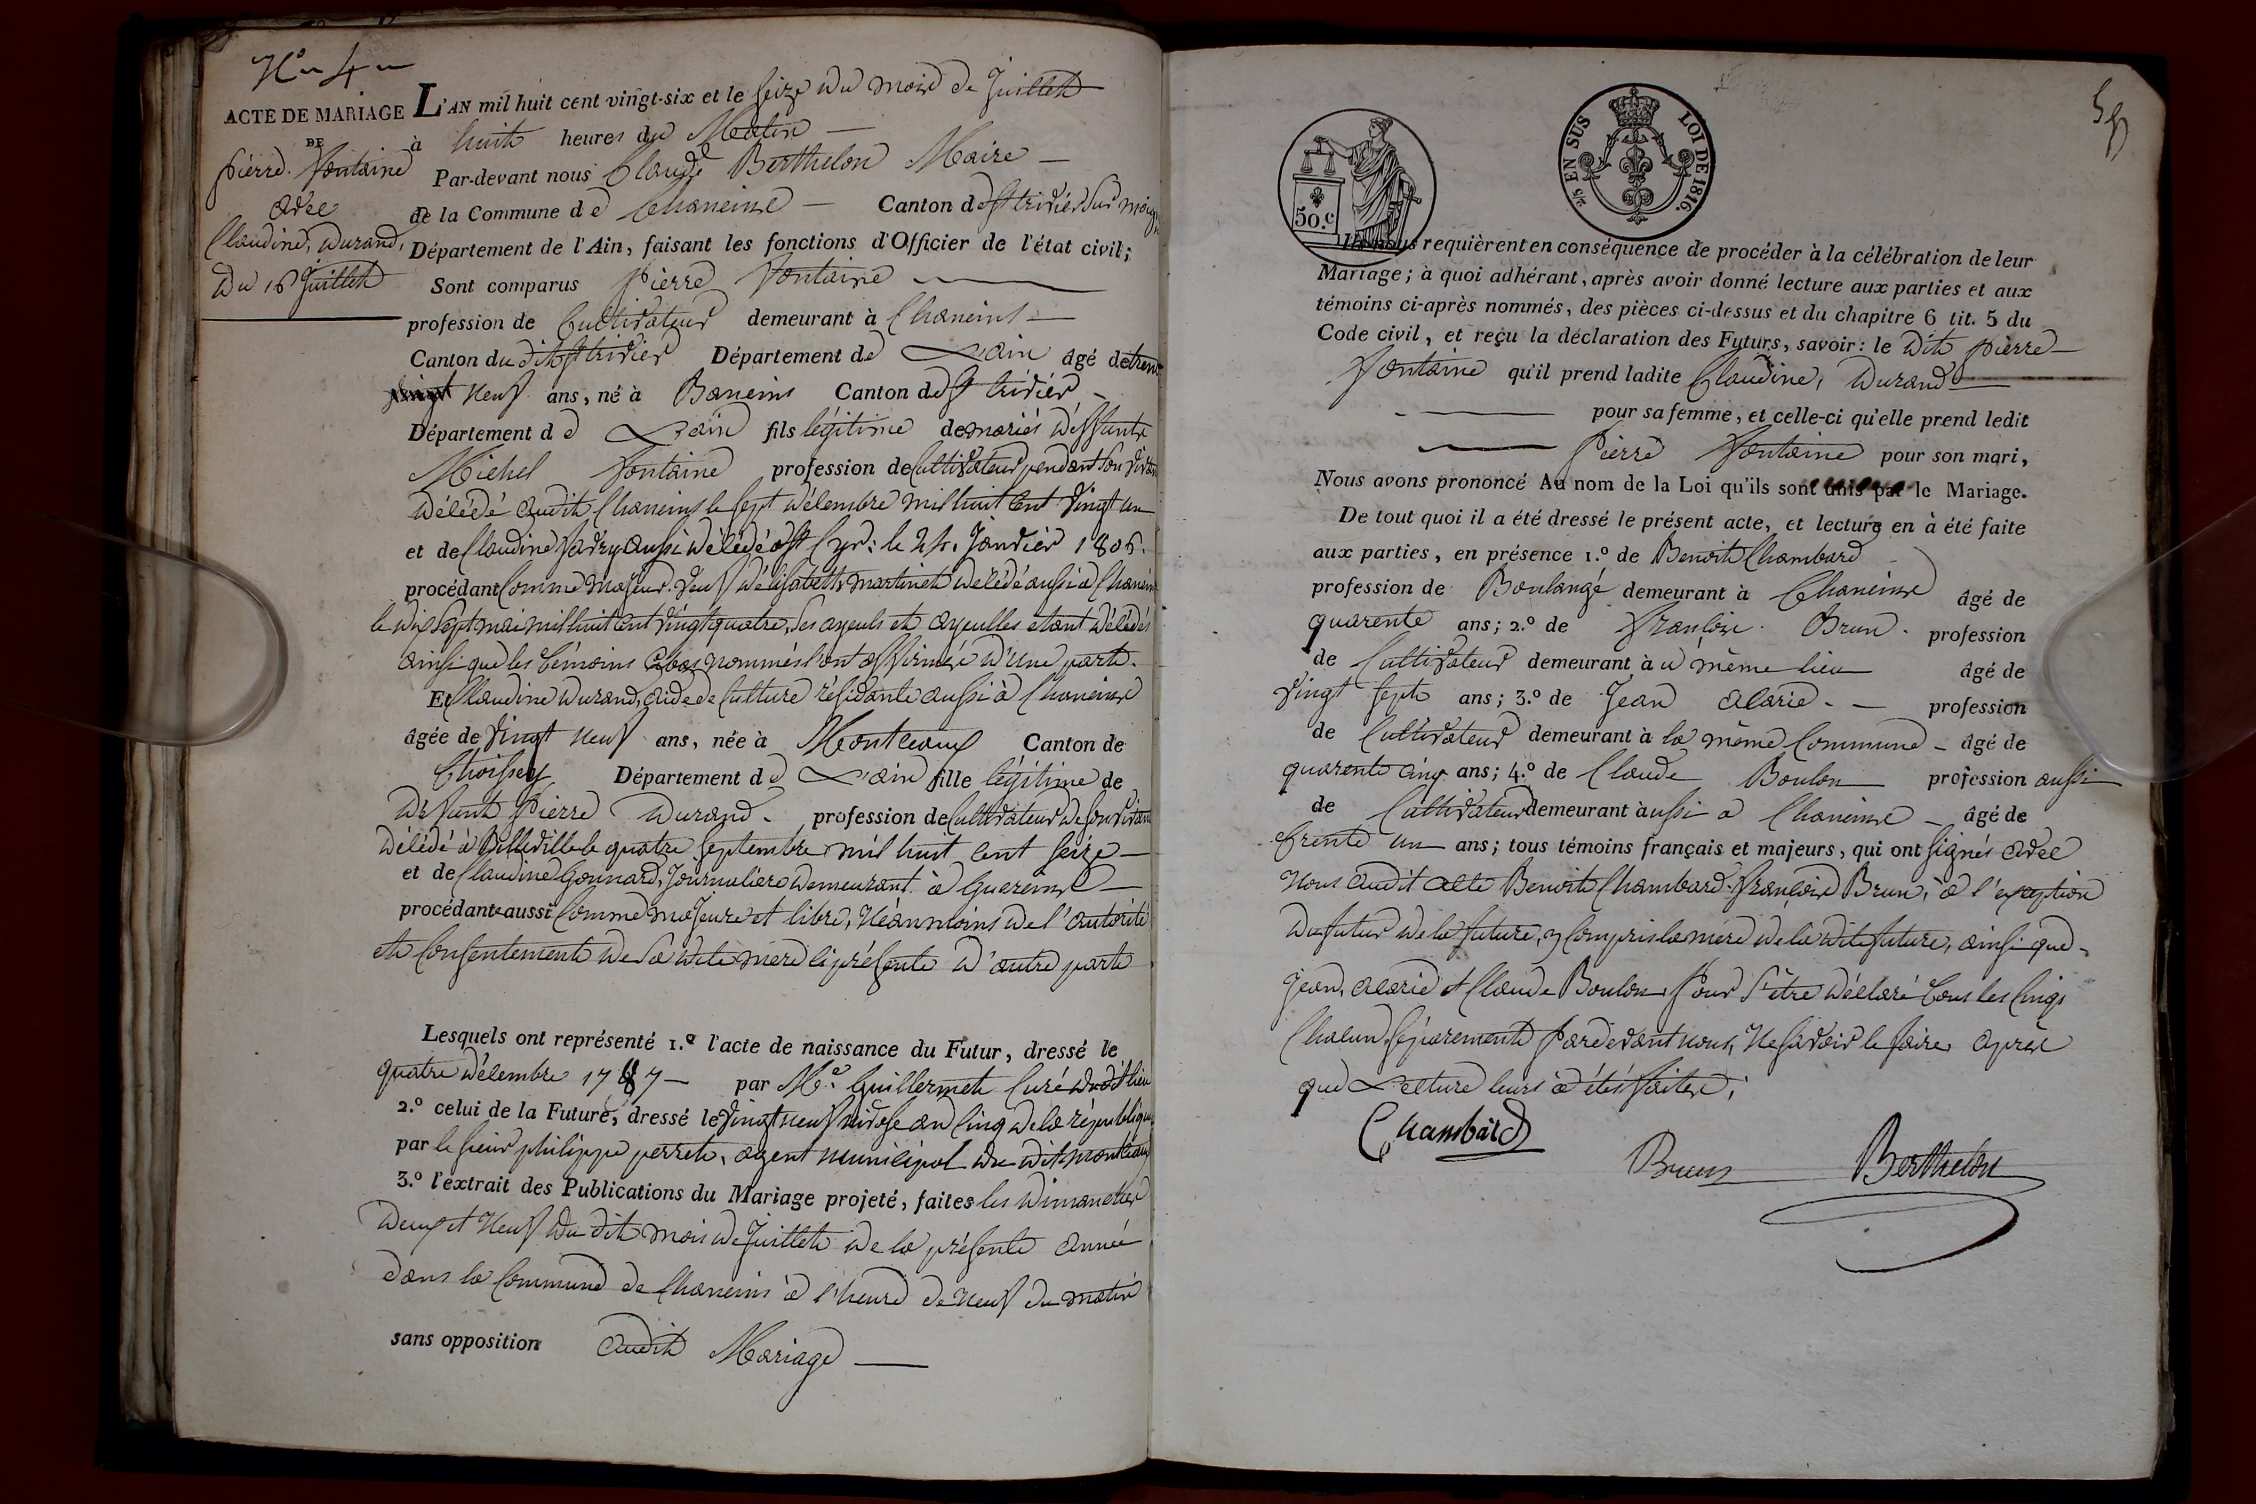 N.o 4
ACTE DE MARIAGE
DE
pierre Fontaine
avec
Claudine, Durand,
Du 16 Juillet
L'AN mil huit cent vingt-six et le seize du mois de Juillet
à huit heures du Matin
Par-devant nous Claude Berthelon Maire
de la Commune de Chaneins Canton de St trivier Sur Moig
Département de l'Ain, faisant les fonctions d'Officier de l'état civil;
Sont comparus Pierre Fontaine
profession de Cultivateur demeurant à Chaneins
Canton du dit St trivier Département de L'ain âgé de trente
vingt neuf ans, né à Baneins Canton de St trivier
Département de L'ain fils légitime de mariés déffunts
Michel Fontaine profession de Cultivateur pendant Son vivant
décédé audit Chaneins le sept décembre mil huit cent vingt un
et de Claudine favry aussi décédée à St Cyr: le 24. Janvier 1806.
procédant Comme majeur. veuf d'élisabeth martinet décédé aussi à Chaneins
le dix Sept mai mil huit cent vingt quatre, Ses ayeuls et ayeulles étant décédés
ainsi que les témoins cibas nommés l'ont affirmée d'une part.
Et Claudine Durand, aide de Culture résidante aussi à Chaneins
âgée de vingt neuf ans, née à Montceaux Canton de
thoissey Département de L'ain fille légitime de
Défunt Pierre Durand. profession de Cultivateur de son vivant
décédé à Belleville le quatre Septembre mil huit cent seize
et de Claudine Gonnard, Journaliere demeurant à Guereins
procédante aussi Comme majeure et libre, Néanmoins de l'autorité
et Consentement de Sa dite mère ciprésente d'autre part
Lesquels ont représenté 1.º l'acte de naissance du Futur, dressé le
quatre décembre 1787 par Mr. Guillermet Curé du dit lieu
2.º celui de la Future, dressé le vingt neuf nivose an Cinq de la république
par le sieur philippe perret, agent municipal du dit montceaux
3.º l'extrait des Publications du Mariage projeté, faites les dimanches
deux et Neuf du dit mois de Juillet de la présente année
dans la Commune de Chaneins à l'heure de neuf du matin
sans opposition audit Mariage
50.c
5/10 EN SUS LOI DE 1816.
Ils nous requièrent en conséquence de procéder à la célébration de leur
Mariage; à quoi adhérant, après avoir donné lecture aux parties et aux
témoins ci-après nommés, des pièces ci-dessus et du chapitre 6 tit. 5 du
Code civil, et reçu la déclaration des Futurs, savoir: le dit pierre
Fontaine qu'il prend ladite Claudine, Durand
pour sa femme, et celle-ci qu'elle prend ledit
Pierre Fontaine pour son mari,
Nous avons prononcé Au nom de la Loi qu'ils sont unis par le Mariage.
De tout quoi il a été dressé le présent acte, et lecture en à été faite
aux parties, en présence 1.º de Benoit Chambard
profession de Boulangé demeurant à Chaneins âgé de
quarente ans; 2.º de Françoix Brun. profession
de Cultivateur demeurant à u même lieu âgé de
vingt sept ans; 3.º de Jean Alarie. profession
de Cultivateur demeurant à la même Commune âgé de
quarente cinq ans; 4.º de Claude Boulon profession aussi
de Cultivateur demeurant aussi a Chaneins âgé de
trente un ans; tous témoins français et majeurs, qui ont signés avec
nous audit acte Benoit Chambard. françoix Brun, à l'exeption
du futur de la future, y Compris la mere de la dite future, ainsi que
Jean, alarie et Claude Boulon. Pour S'être déclaré tous les Cinqs
Chacun Séparement Pardevant nous, Ne savoir le faire apres
que Lecture leurs à étés faites,
Chambard
Brun
Berthelon